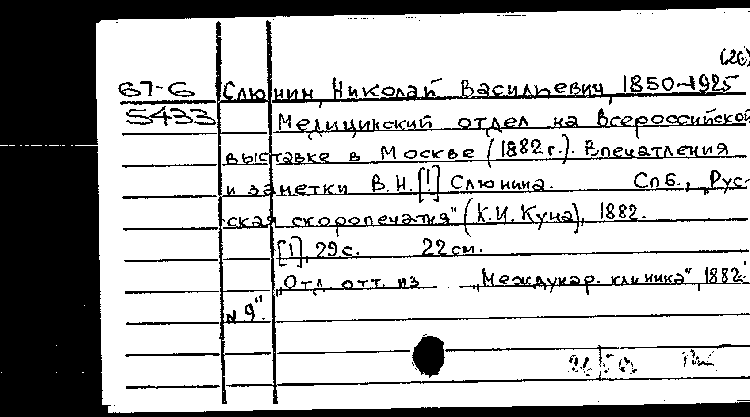 (26)
67-6 Слюнин, Николай Васильевич, 1850-1925
5433 Медицинский отдел на Всероссийской
выставке в Москве (1882 г.). Впечатления
и заметки В.Н. [!] Слюнина. Спб., „Рус-
ская скоропечатня" (К.И. Куна), 1882.
[1], 29 с. 22 см.
„Отд. отт. из „Междунар. клиника", 1882.
№ 9".